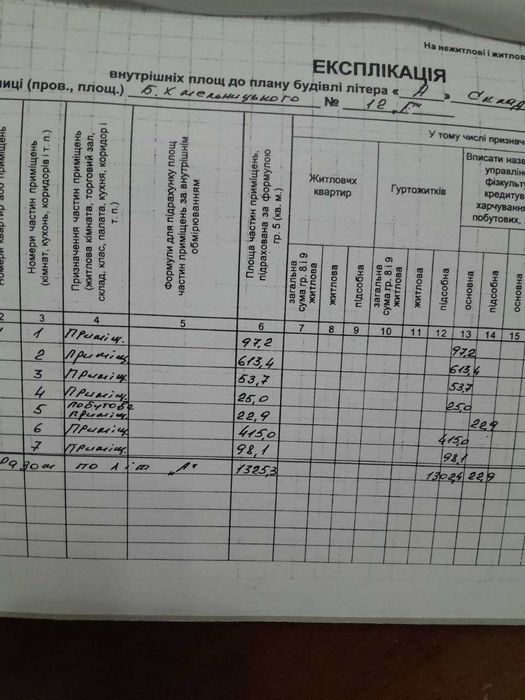 На нежитлові і житлов
ЕКСПЛІКАЦІЯ
внутрішніх площ до плану будівлі літера « А » Склад
лиці (пров., площ.) Б. Хмельницького № 12 „Г"
Номери квартир або приміщень
Номери частин приміщень (кімнат, кухонь, коридорів і т. п.)
Призначення частин приміщень (житлова кімната, торговий зал, склад, клас, палата, кухня, коридор і т. п.)
Формули для підрахунку площ частин приміщень за внутрішнім обмірюванням
Площа частин приміщень, підрахована за формулою гр. 5 (кв. м.)
У тому числі признач
Житлових квартир
Гуртожитків
Вписати назв
управлінс
фізкульту
кредитув
харчування
побутових,
загальна сума гр. 8 і 9 житлова
житлова
підсобна
загальна сума гр. 8 і 9 житлова
житлова
підсобна
основна
підсобна
основна
2 3 4 5 6 7 8 9 10 11 12 13 14 15
1 1 Приміщ. 97,2 97,2
2 Приміщ. 613,4 613,4
3 Приміщ 53,7 53,7
4 Приміщ 25,0 25,0
5 побутове приміщ. 22,9 22,9
6 Приміщ. 415,0 415,0
7 Приміщ. 98,1 98,1
Разом по літ „А" 1325,3 1302,4 22,9